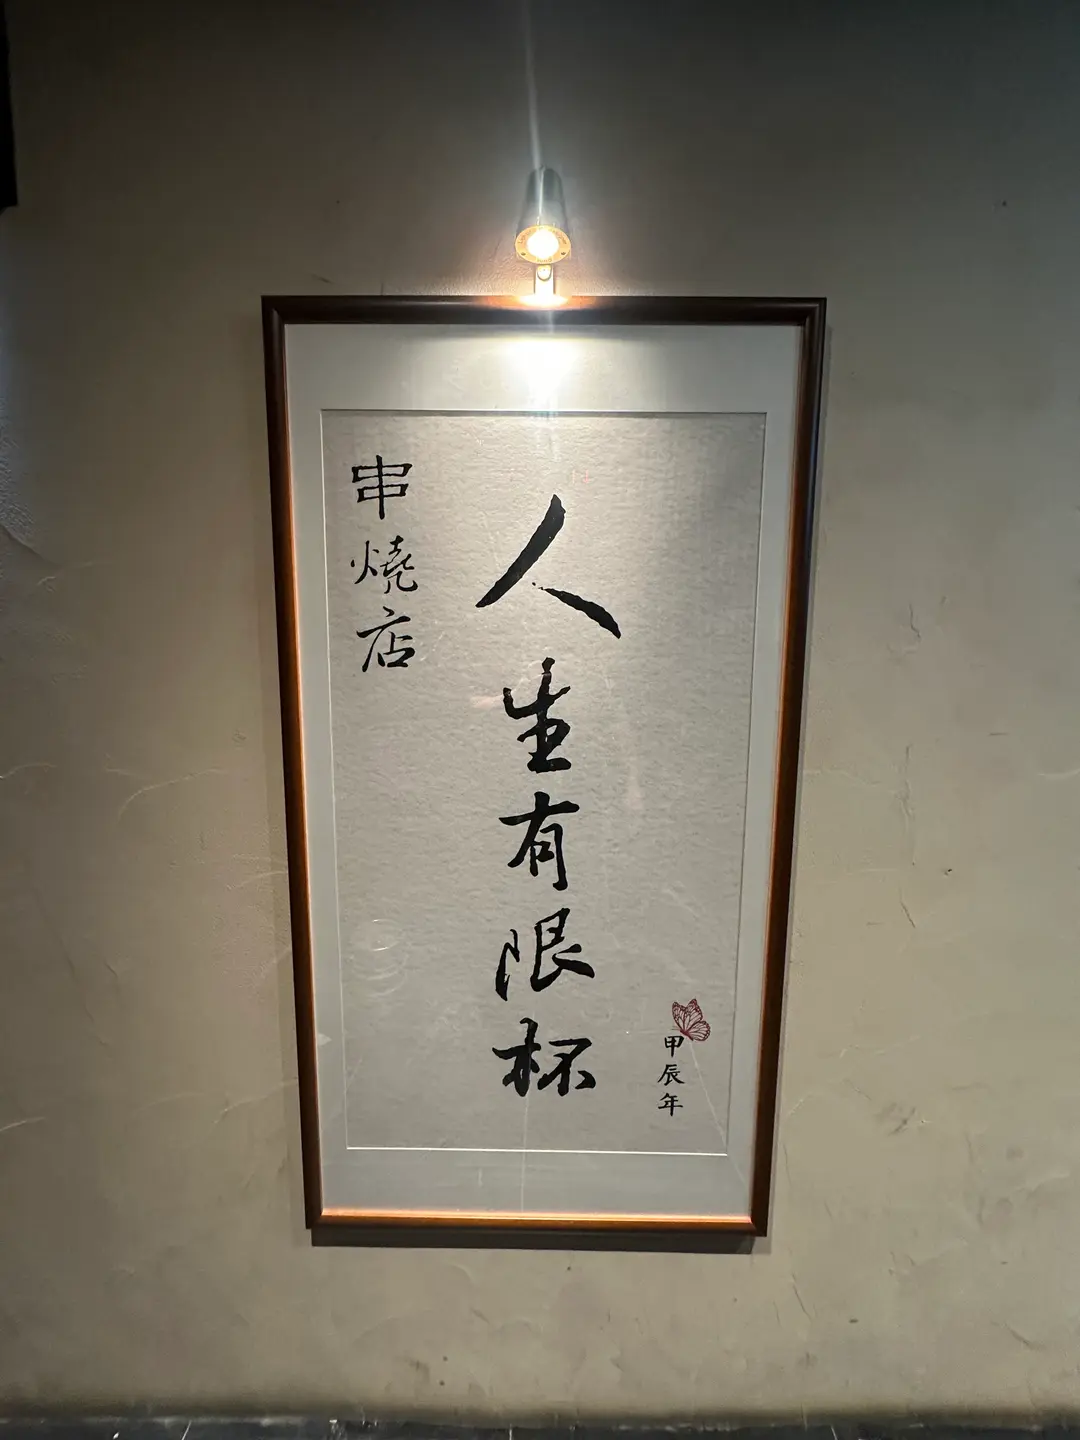 甲辰年
人生有限杯
串燒店